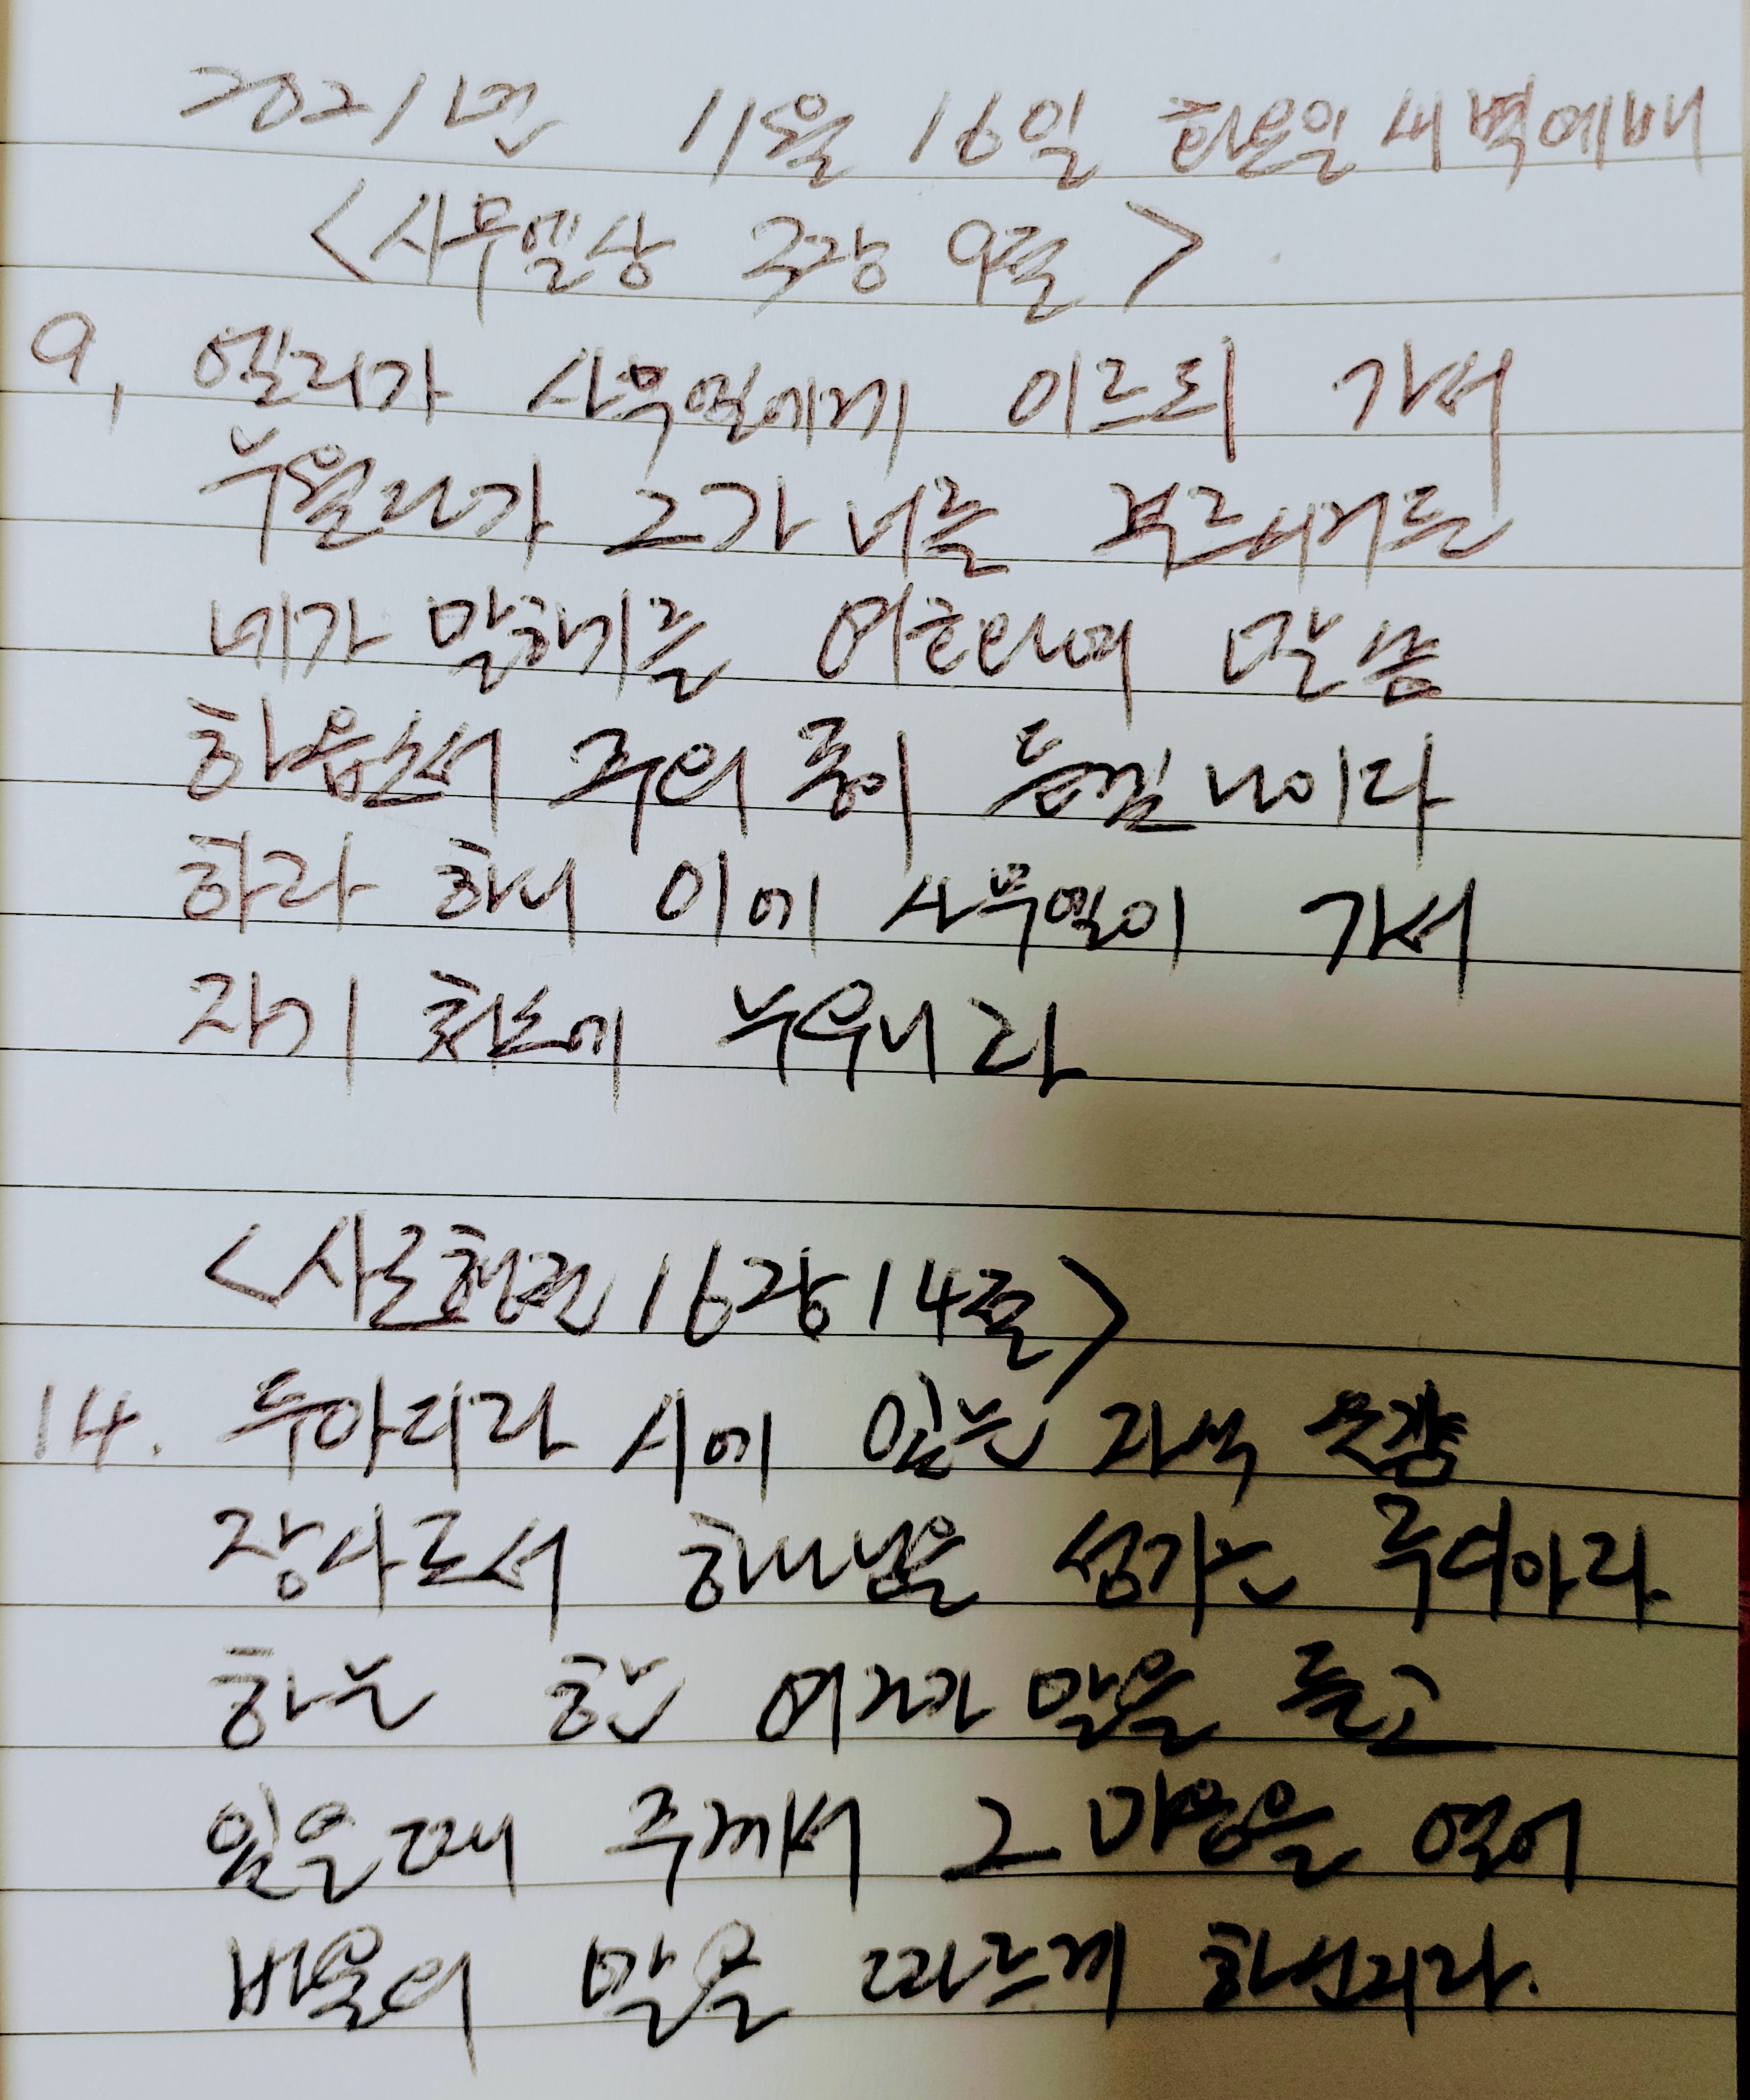 2021년 11월 16일 화요일 새벽예배
<사무엘상 3장 9절>
9, 엘리가 사무엘에게 이르되 가서
누웠다가 그가 너를 부르시거든
네가 말하기를 여호와여 말씀
하옵소서 주의 종이 듣겠나이다
하라 하니 이에 사무엘이 가서
자기 처소에 누우니라
<사도행전 16장 14절>
14. 두아디라 시에 있는 자색 옷감
장사로서 하나님을 섬기는 루디아라
하는 한 여자가 말을 듣고
있을때 주께서 그 마음을 열어
바울의 말을 따르게 하신지라.